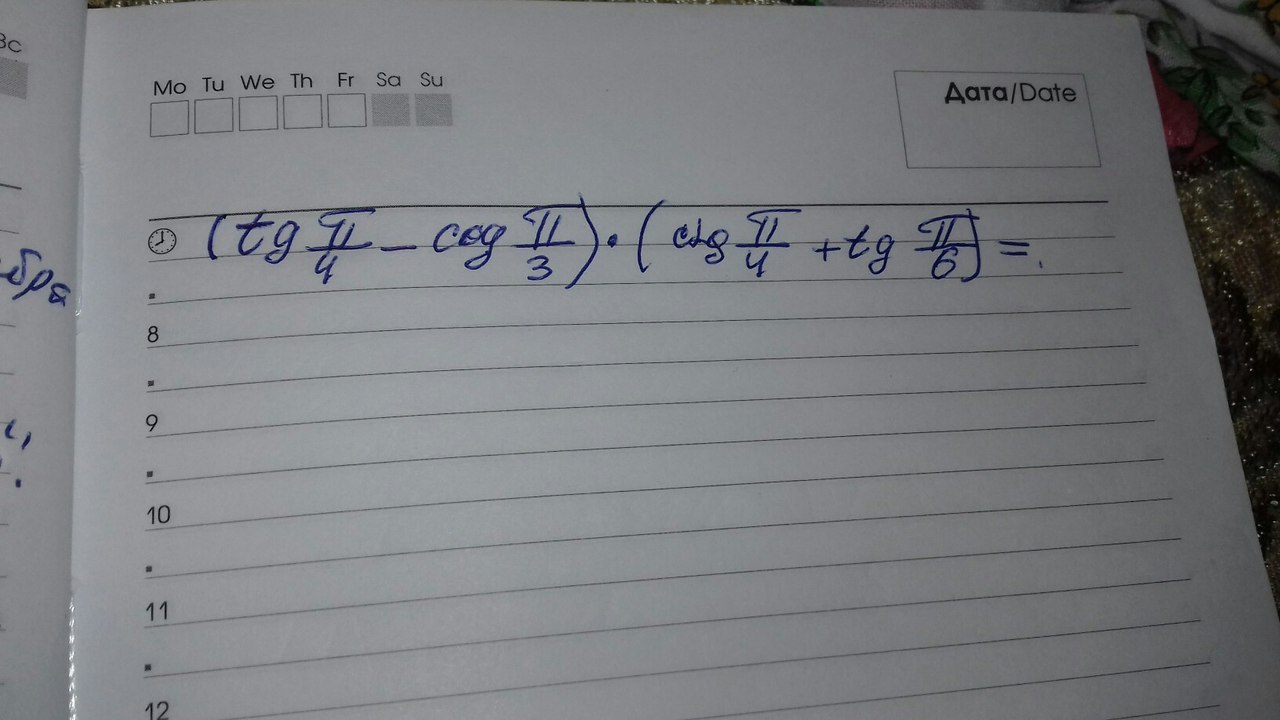 Вс
Mo Tu We Th Fr Sa Su
Дата/Date
(tg π/4 − ctg π/3) · (ctg π/4 + tg π/6) =
8
9
10
11
12